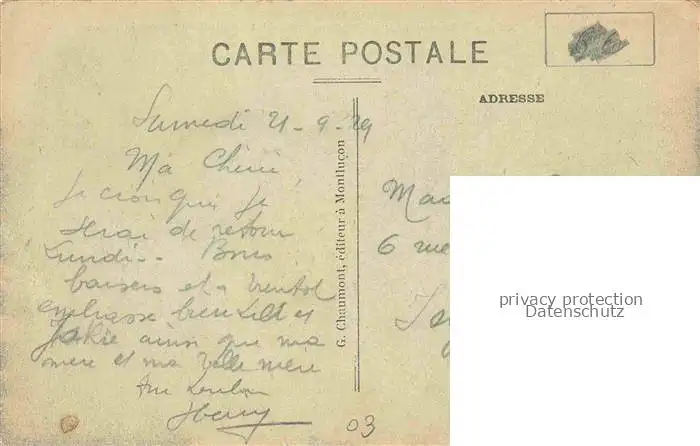 CARTE POSTALE
ADRESSE
Samedi 21-9-29
Ma Chérie,
Je crois que je
serai de retour
Lundi - Bons
baisers et a bientot
embrasse bien et
Jackie ainsi que ma
mere et ma belle mere
Ton
Henry
G. Chaumont, éditeur à Montluçon
Mad
6 rue
03
privacy protection
Datenschutz